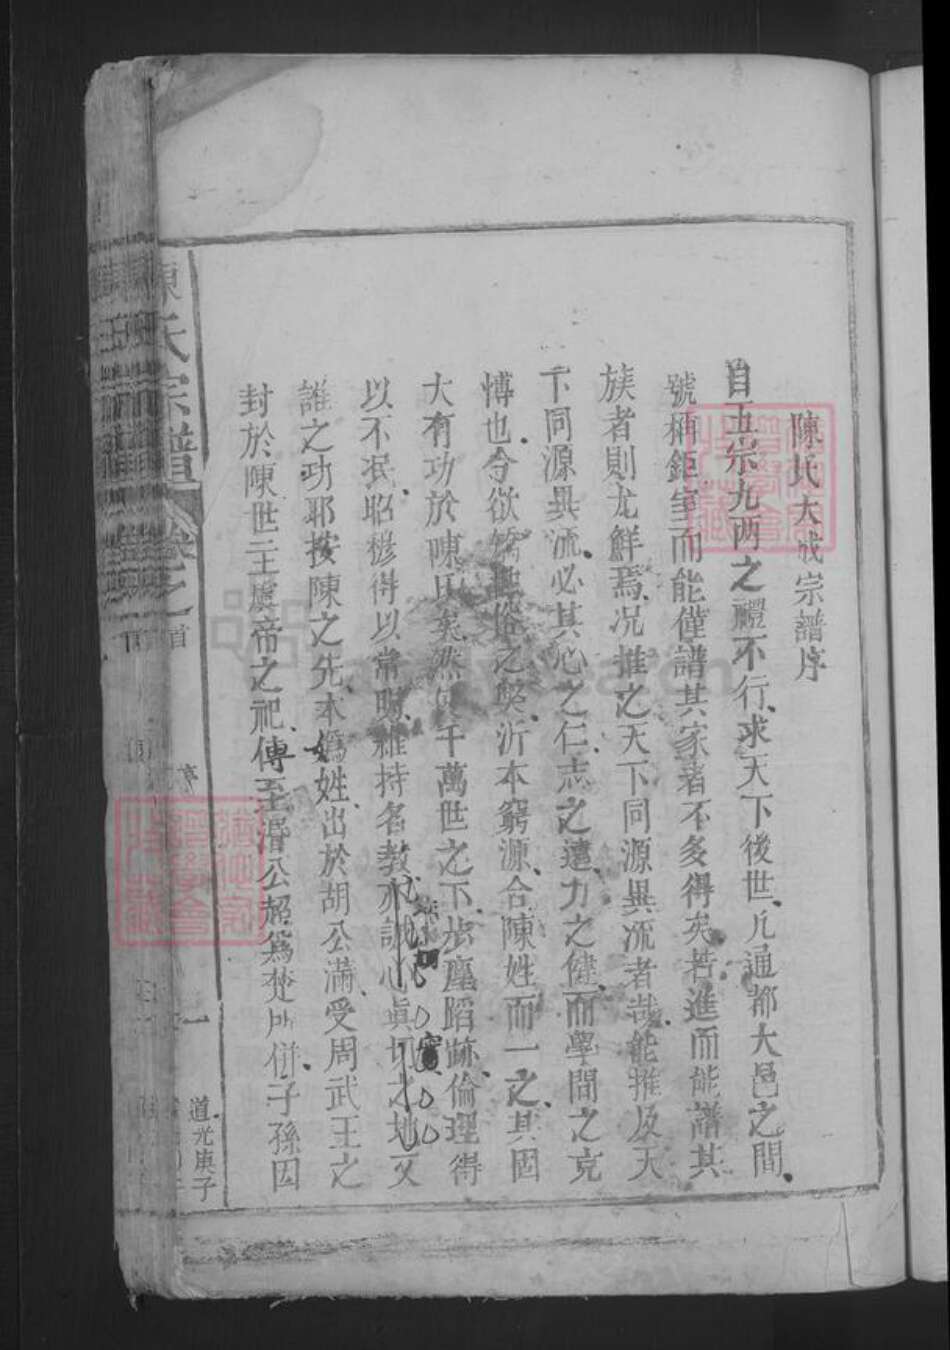 陳氏大成宗譜序
自五宗九两之禮不行求天下後世凡通都大邑之間
號稱鉅室而能僅譜其家者不多得矣若進而能譜其
族者則尤鮮焉况推之天下同源異流者哉能推及天
下同源異流必其心之仁志之遠力之健而學問之克
愽也今欲俗之契沂本窮源合陳姓而一之其固
大有功於陳氏矣然使千萬世之下步塵蹈跡倫理得
以不泯昭穆得以常明維持名教亦誠心眞切之地又
誰之功耶按陳之先本媯姓出於胡公滿受周武王之
封於陳世主虞帝之祀傳至湣公爲楚所併子孫因
陳氏宗譜
卷之首
序
一
道光庚子